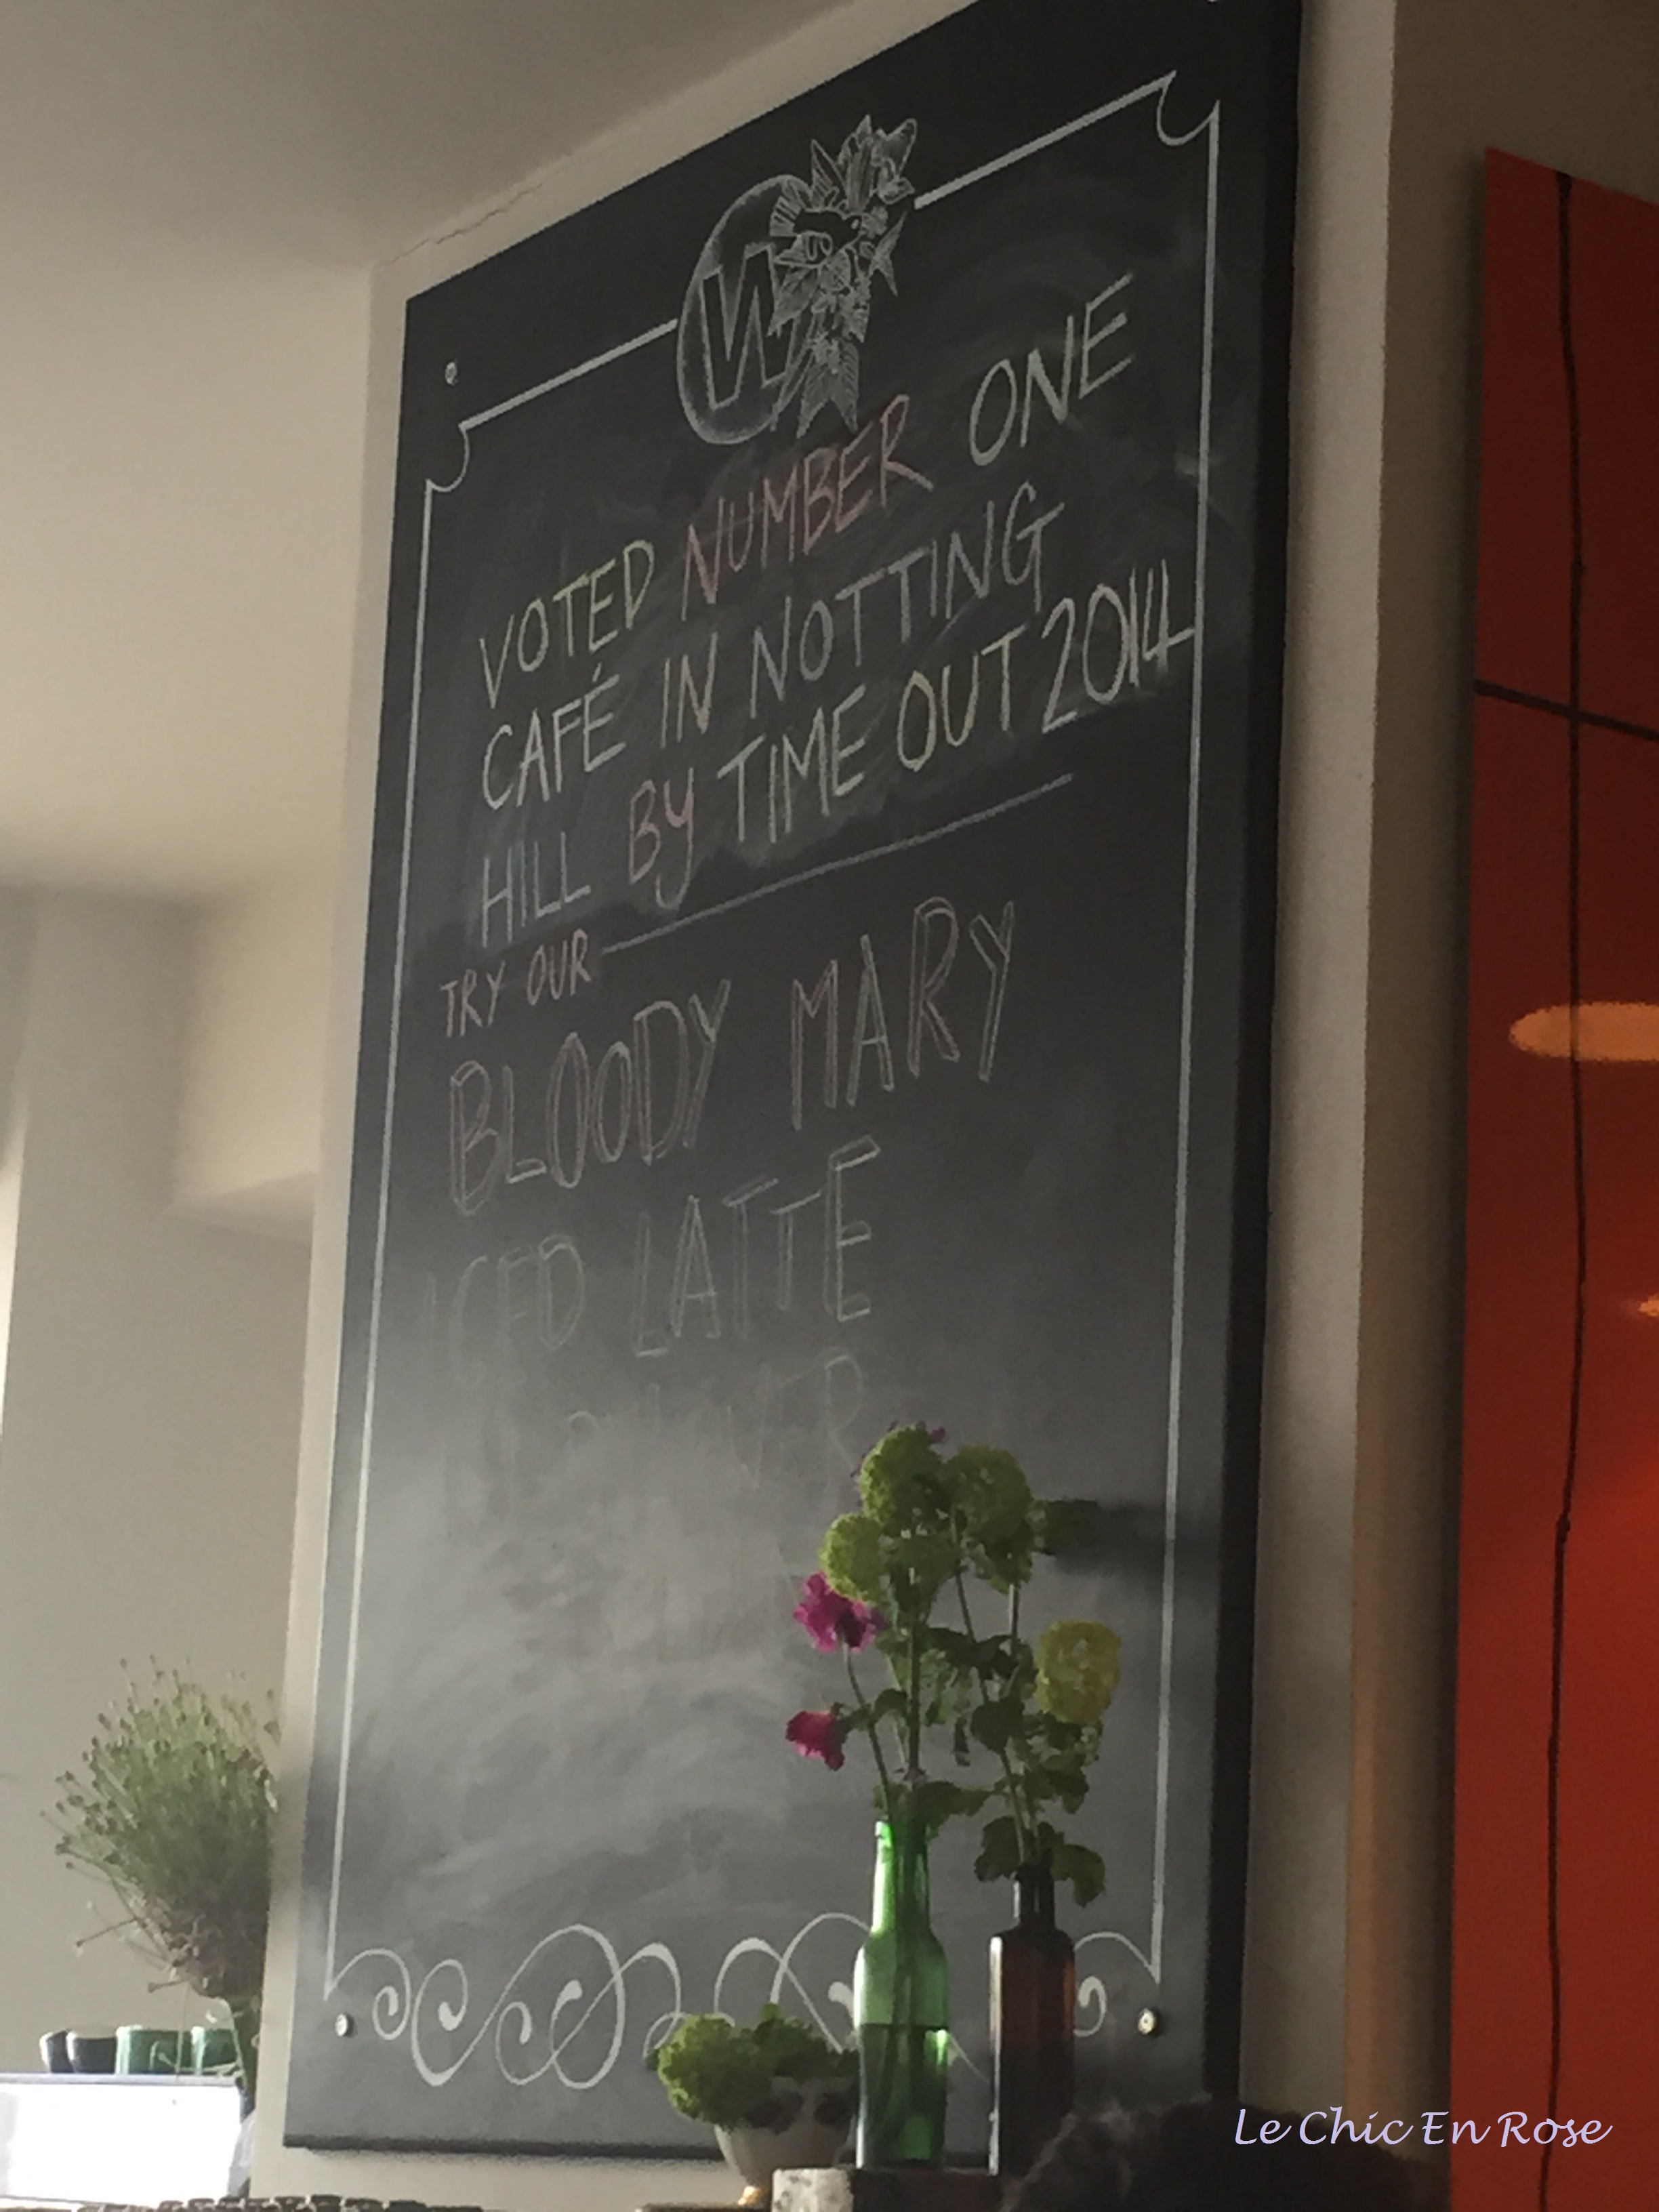 W
VOTED NUMBER ONE
CAFÉ IN NOTTING
HILL BY TIME OUT 2014
TRY OUR
BLOODY MARY
ICED LATTE
Le Chic En Rose